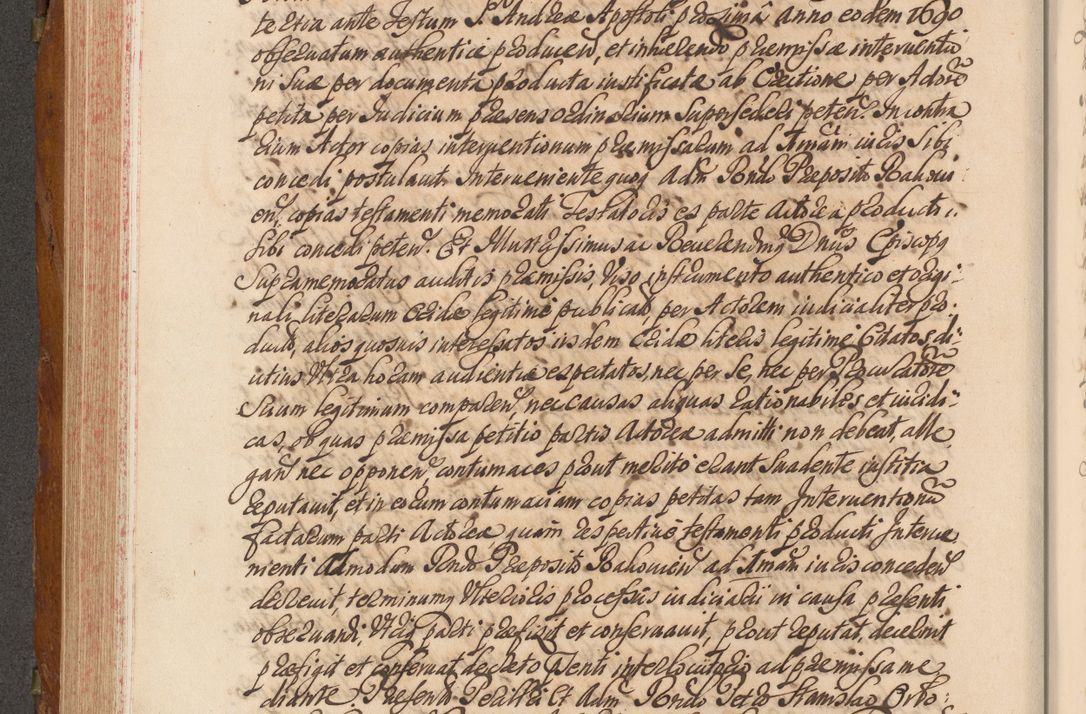 te Extra ante Festum S. Andreæ Apostoli proximâ anno eodem 1690
observatum authenticè producen, et inhærendo præmissæ interventio
ni suæ per documenta producta iustificatæ ab Erectione per Actore
petita per Iudicium præsens ordinarium supersederi peten. In contra
rium Actor copias interventionum præmissarum ad Amām iuris sibi
concedi postulavit. Interveniente quoq Adm Rndo Præposito Rahoui
en, copias testamenti memorati Testatoris ex parte Actorea producti
sibi concedi peten. Et Illustrissimus ac Reverendmq Dnus Episcopq
Supramemoratus auditis præmissis, viso instrumento authentico et origi-
nali literarum Cridæ legitimè publicat, per Actorem iudicialiter pro-
duct, alios quosvis interessatos iisdem Cridæ literis legitimè Citatos, di-
utius Ultra horam audientiæ expectatos, nec per se, nec per Procuratore
Suum legitimum comparen, nec causas aliquas rationabiles et iuridi-
cas, ob quas præmissa petitio partis Actoreæ admitti non debeat, alle
gan nec opponen, contumaces prout merito erant suadente iustitia
reputavit, et in eorum contumaciam copias petitas tam Interventionū
factarum parti Actoreæ quam respective testamenti producti Interve
nienti Admodum Rndo Præposito Rahouien ad Amām iuris conceden
decrevit, terminumq Ulterioris processus iudiciarii in causa præsenti
observandi, Utriq parti præfixit et conservavit, prout reputat, decernit
præfigit et conservat decreto præsenti interlocutorio ad præmissa me
diante. Præsentib Adm Rndo Petro Stanislao Orlo-